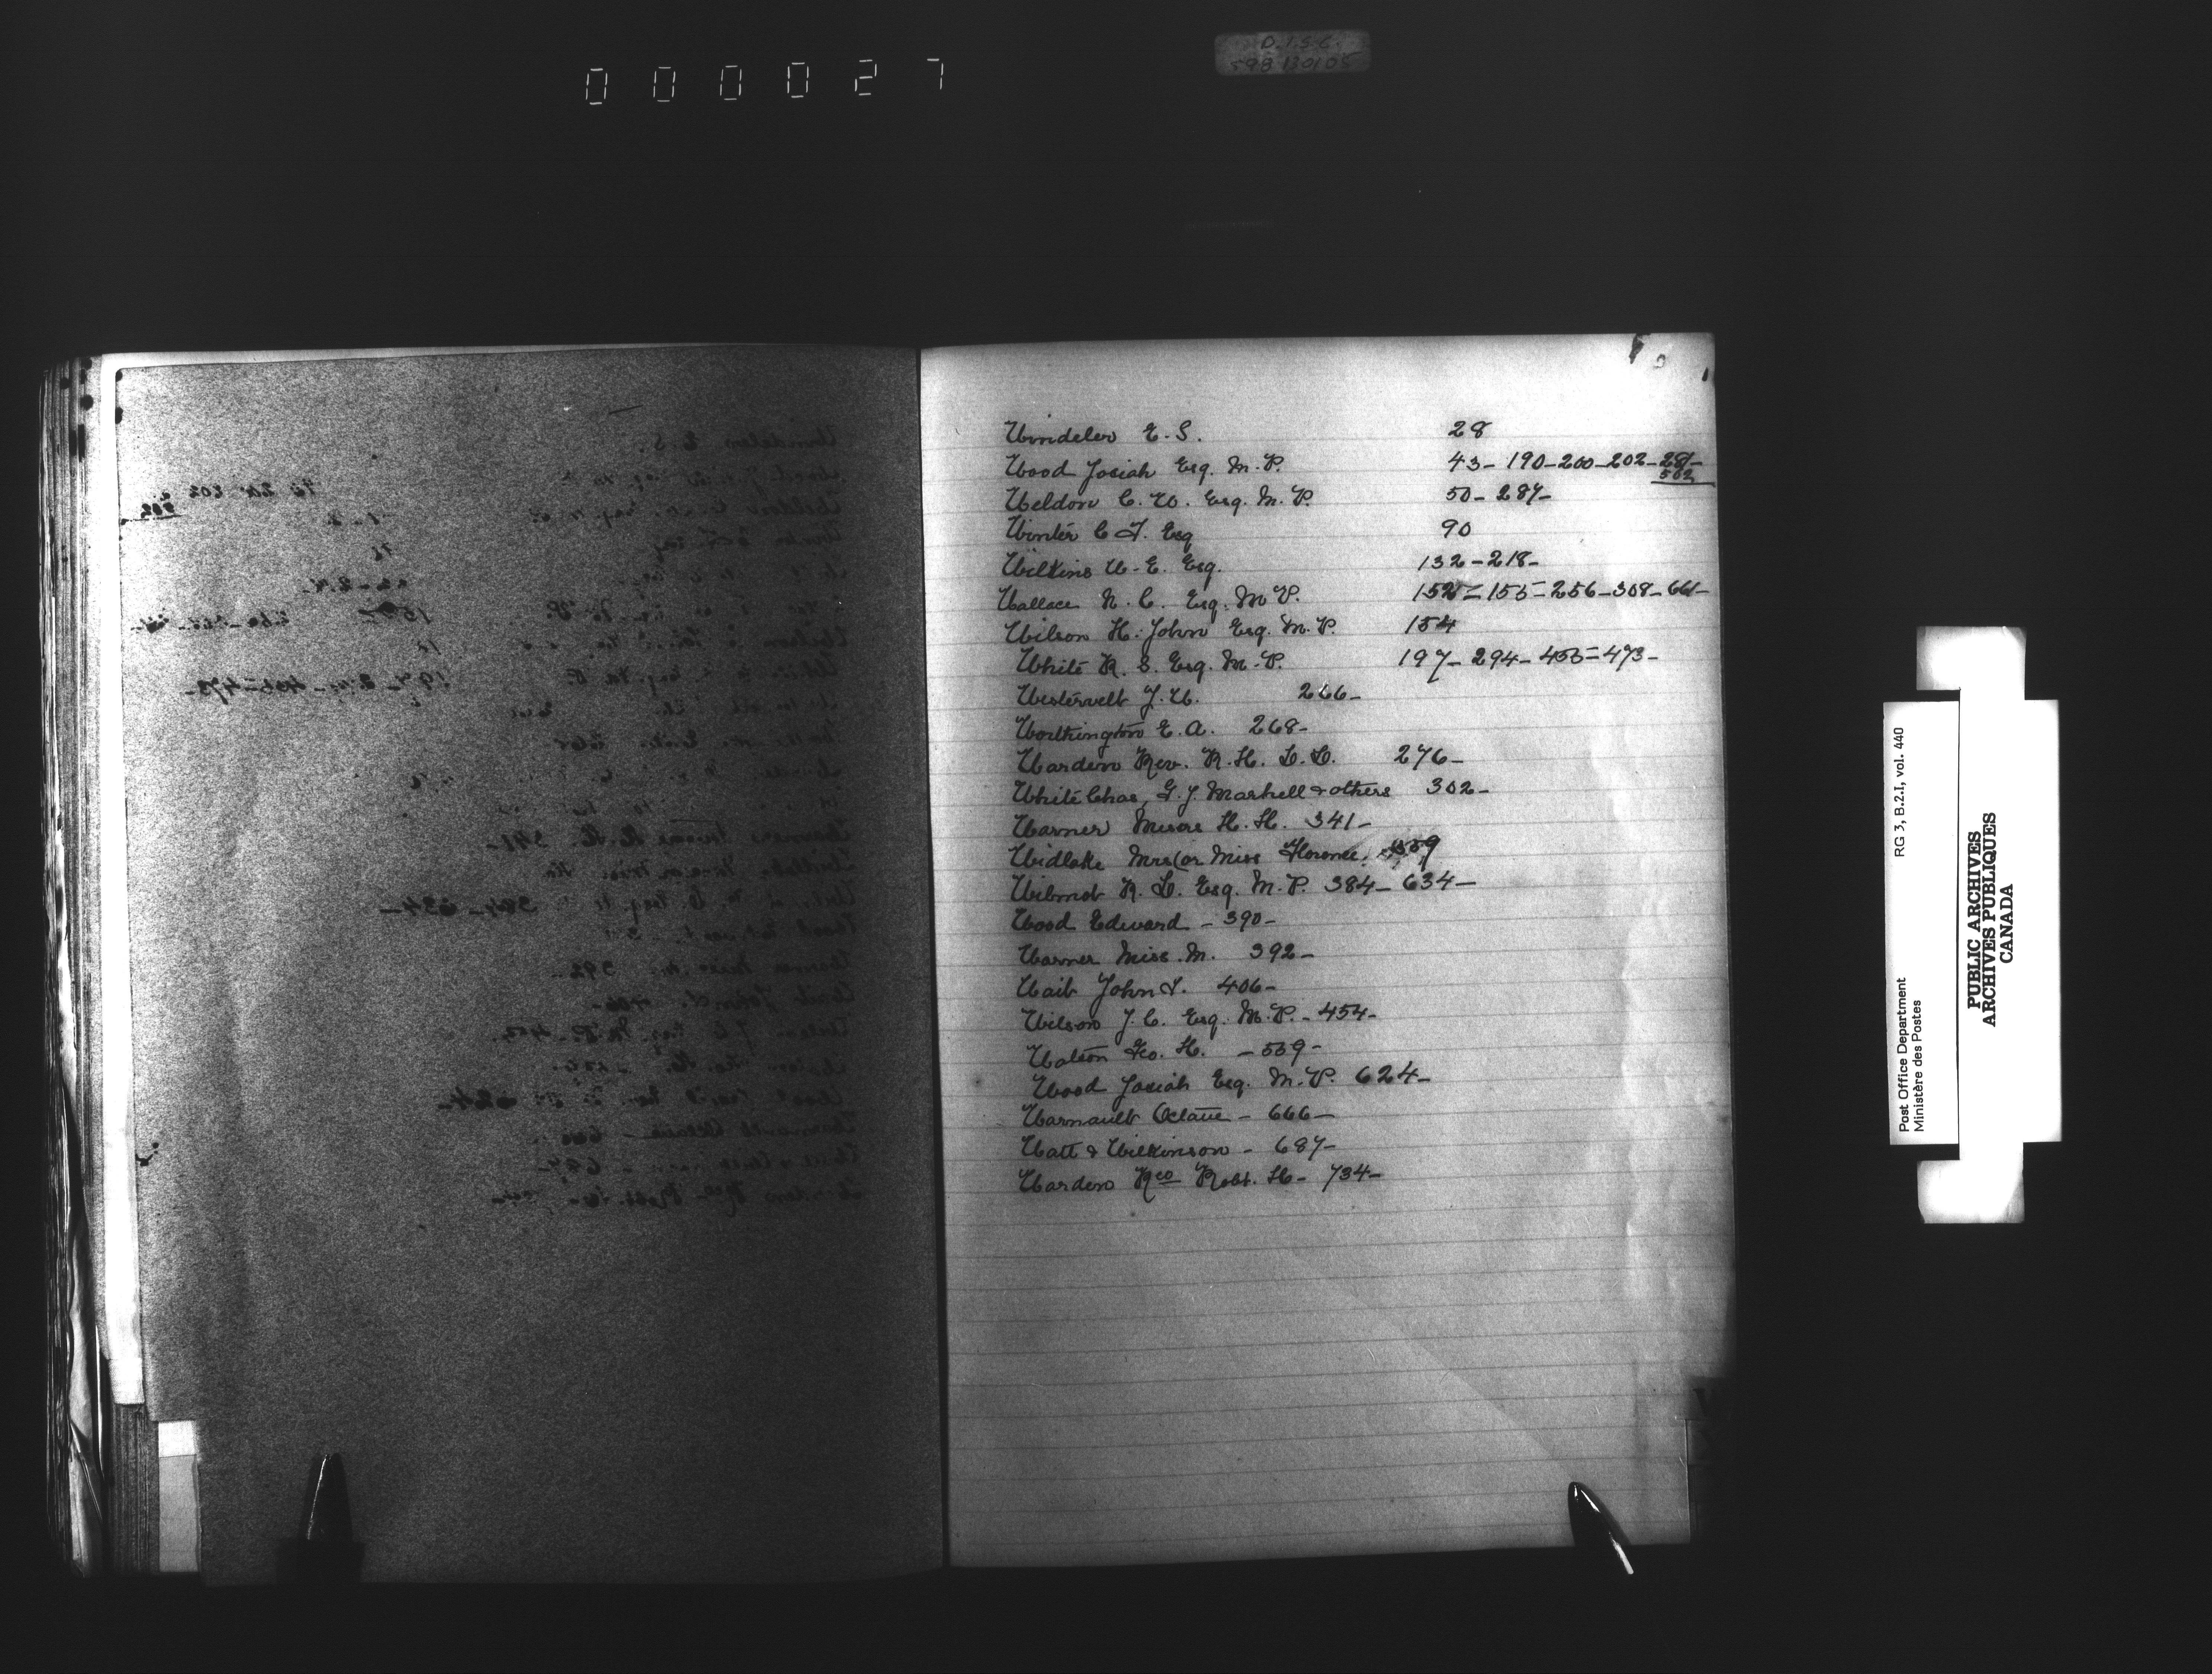 000027
D.I.S.C.
Windeler E. S. 28
Wood Josiah Esq. M.P. 43-190-200-202-281-
502
Weldon C. W. Esq. M.P. 50-287-
Winter C. F. Esq 90
Wilkins W. E. Esq. 132-218-
Wallace N. C. Esq. M P. 152-155-256-308-661-
Wilson H. John Esq. M.P. 154
White R. S. Esq. M.P. 197-294-455-473-
Westervelt J. W. 266-
Worthington E. A. 268-
Warden Rev. R. H. D.D. 276-
White Chas, G. J. Markell & others 302-
Warner Messrs H. H. 341-
Widlake Mrs (or Miss Florence.
Wilmot R. D. Esq. M.P. 384-634-
Wood Edward - 390-
Warner Miss. M. 392-
Wait John 406-
Wilson J. C. Esq. M.P. - 454-
Watson Geo. H. - 559-
Wood Josiah Esq. M.P. 624-
Warnault Octave - 666-
Watt & Wilkinson - 687-
Warden Rev Robt. H - 734-
Post Office Department RG 3, B.2.I, vol. 440
Ministère des Postes
PUBLIC ARCHIVES
ARCHIVES PUBLIQUES
CANADA